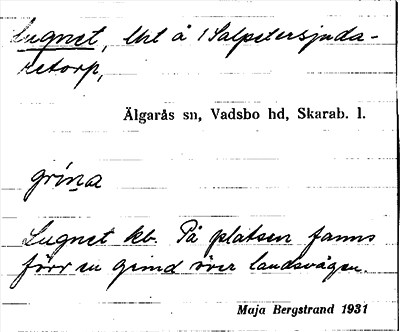 Lugnet, lht å 1 Salpetersjuda-
retorp,
Älgarås sn, Vadsbo hd, Skarab. l.
grína
Lugnet kb. På platsen fanns
förr en grind över landsvägen.
Maja Bergstrand 1931